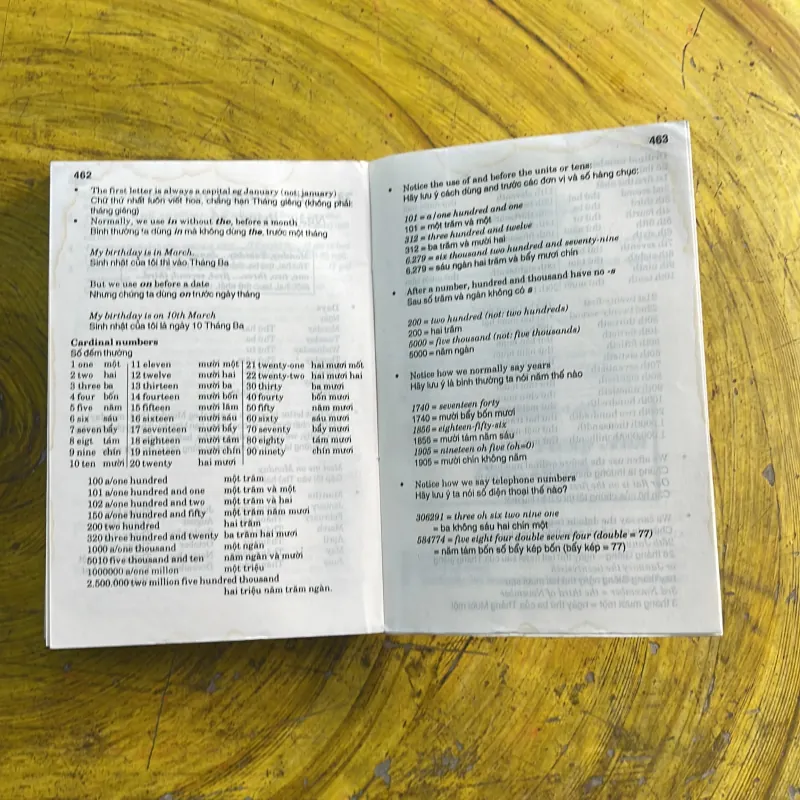 462
• The first letter is always a capital eg January (not: january)
Chữ thứ nhất luôn viết hoa, chẳng hạn Tháng giêng (không phải:
tháng giêng)
• Normally, we use in without the, before a month
Bình thường ta dùng in mà không dùng the, trước một tháng
My birthday is in March.
Sinh nhật của tôi thì vào Tháng Ba
But we use on before a date
Nhưng chúng ta dùng on trước ngày tháng
My birthday is on 10th March
Sinh nhật của tôi là ngày 10 Tháng Ba
Cardinal numbers
Số đếm thường
1 one một 11 eleven mười một 21 twenty-one hai mươi mốt
2 two hai 12 twelve mười hai 22 twenty-two hai mươi hai
3 three ba 13 thirteen mười ba 30 thirty ba mươi
4 four bốn 14 fourteen mười bốn 40 fourty bốn mươi
5 five năm 15 fifteen mười lăm 50 fifty năm mươi
6 six sáu 16 sixteen mười sáu 60 sixty sáu mươi
7 seven bảy 17 seventeen mười bảy 70 seventy bảy mươi
8 eigt tám 18 eighteen mười tám 80 eighty tám mươi
9 nine chín 19 nineteen mười chín 90 ninety chín mươi
10 ten mười 20 twenty hai mươi
100 a/one hundred một trăm
101 a/one hundred and one một trăm và một
102 a/one hundred and two một trăm và hai
150 a/one hundred and fifty một trăm năm mươi
200 two hundred hai trăm
320 three hundred and twenty ba trăm hai mươi
1000 a/one thousand một ngàn
5010 five thousand and ten năm ngàn và mười
1000000 a/one millon một triệu
2.500.000 two million five hundred thousand
hai triệu năm trăm ngàn.
463
• Notice the use of and before the units or tens:
Hãy lưu ý cách dùng and trước các đơn vị và số hàng chục:
101 = a/one hundred and one
101 = một trăm và một
312 = three hundred and twelve
312 = ba trăm và mười hai
6.279 = six thousand two hundred and seventy-nine
6.279 = sáu ngàn hai trăm và bảy mươi chín
• After a number, hundred and thousand have no -s
Sau số trăm và ngàn không có s
200 = two hundred (not: two hundreds)
200 = hai trăm
5000 = five thousand (not: five thousands)
5000 = năm ngàn
• Notice how we normally say years
Hãy lưu ý là bình thường ta nói năm thế nào
1740 = seventeen forty
1740 = mười bảy bốn mươi
1856 = eighteen-fifty-six
1856 = mười tám năm sáu
1905 = nineteen oh five (oh=0)
1905 = mười chín không năm
• Notice how we say telephone numbers
Hãy lưu ý ta nói số điện thoại thế nào?
306291 = three oh six two nine one
= ba không sáu hai chín một
584774 = five eight four double seven four (double = 77)
= năm tám bốn số bảy kép bốn (bảy kép = 77)